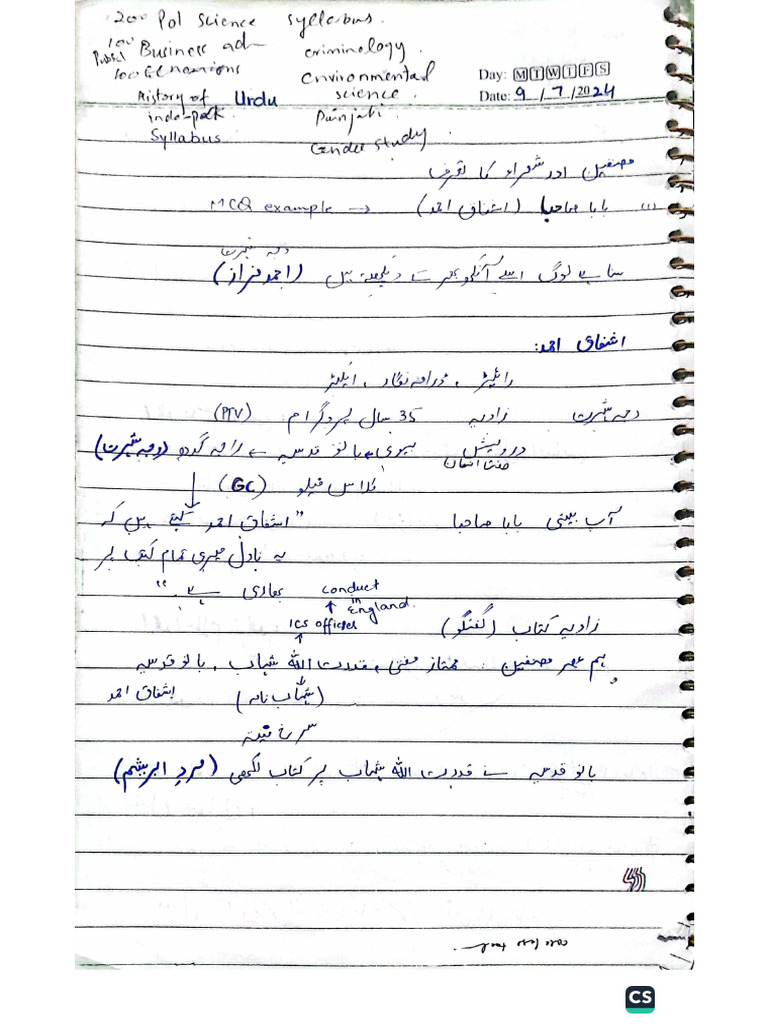 200 Pol Science Syllabus.
100 Business ad criminology.
Public
100 environmental
History of Urdu science.
indo-pak Punjabi
Syllabus Gender Study.
Day: M T W T F S
Date: 9/7/2024
مصنفین اور شعراء کا تعارف
(1) بابا صاحبا (اشفاق احمد) → MCQ example
وجہ شہرت
سنا ہے لوگ اسے آنکھ بھر کے دیکھتے ہیں (احمد فراز)
اشفاق احمد:
رائیٹر، ڈرامہ نگار،
وجہ شہرت زاویہ 35 سال پروگرام (PTV)
درویش بیوی بانو قدسیہ راجہ گدھ (وجہ شہرت)
کلاس فیلو (GC)
آپ بیتی بابا صاحبا "اشفاق احمد کہتے ہیں کہ
یہ ناول میری تمام کتابوں پر
بھاری ہے" conduct
in England.
زاویہ کتاب (گفتگو) ICS officer
ہم عصر مصنفین: ممتاز مفتی، قدرت اللہ شہاب، بانو قدسیہ
(شہاب نامہ) اشفاق احمد
بانو قدسیہ نے قدرت اللہ شہاب پر کتاب لکھی (مردِ ابریشم)
CS